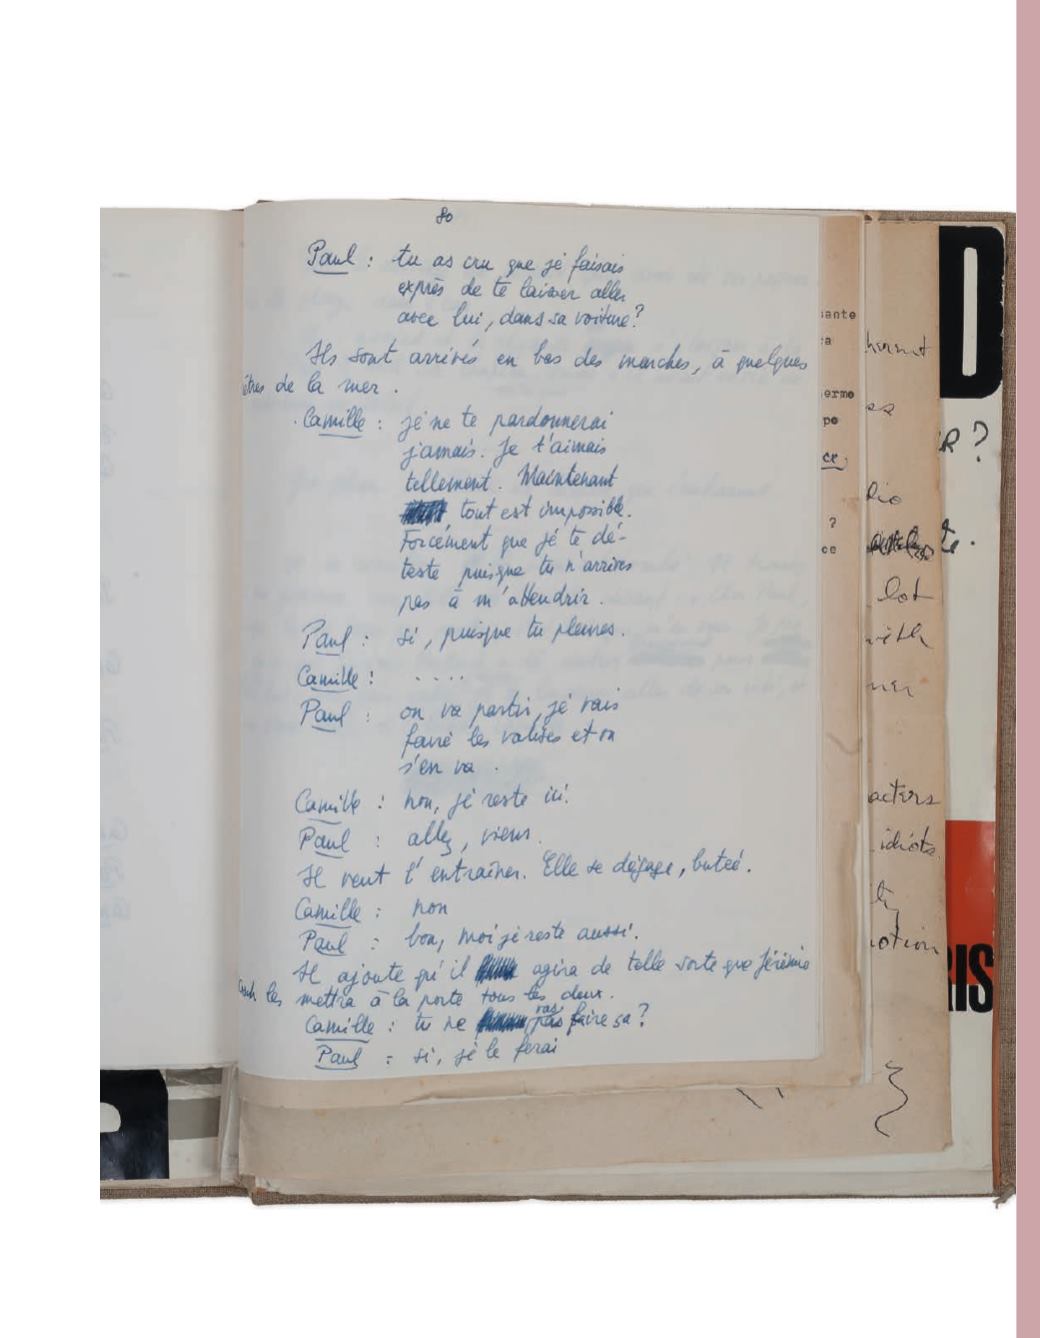 80
Paul : tu as cru que je faisais
exprès de te laisser aller
avec lui, dans sa voiture?
Ils sont arrivés en bas des marches, à quelques
ètres de la mer .
Camille : je ne te pardonnerai
jamais. Je t'aimais
tellement. Maintenant
tout est impossible.
Forcément que je te dé-
teste puisque tu n'arrives
pas à m'attendrir.
Paul : si, puisque tu pleures.
Camille : ....
Paul : on va partir, je vais
faire les valises et on
s'en va .
Camille : non, je reste ici.
Paul : allez, viens.
Il veut l'entraîner. Elle se dégage, butée.
Camille : non
Paul : bon, moi je reste aussi.
Il ajoute qu'il agira de telle sorte que Jérémie
les mettra à la porte tous les deux.
Camille : tu ne vas pas faire ça?
Paul : si, je le ferai
sante
ermo
po
ce
?
ce
D
R?
lot
with
ner
acters
idiots.
otion
RIS